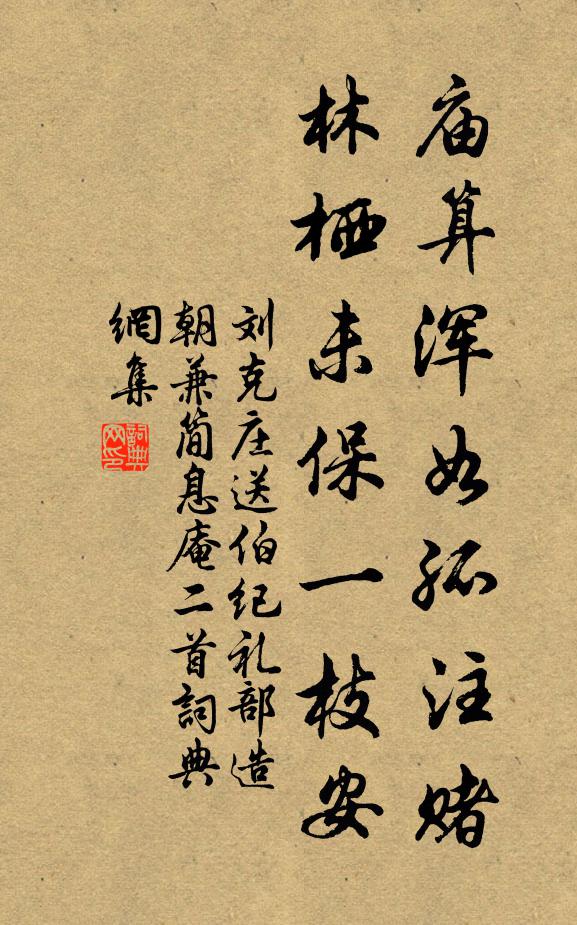 庙算浑如孤注赌
林栖未保一枝安
刘克庄送伯纪礼部造
朝兼简息庵二首詞典
網集
詞典网印